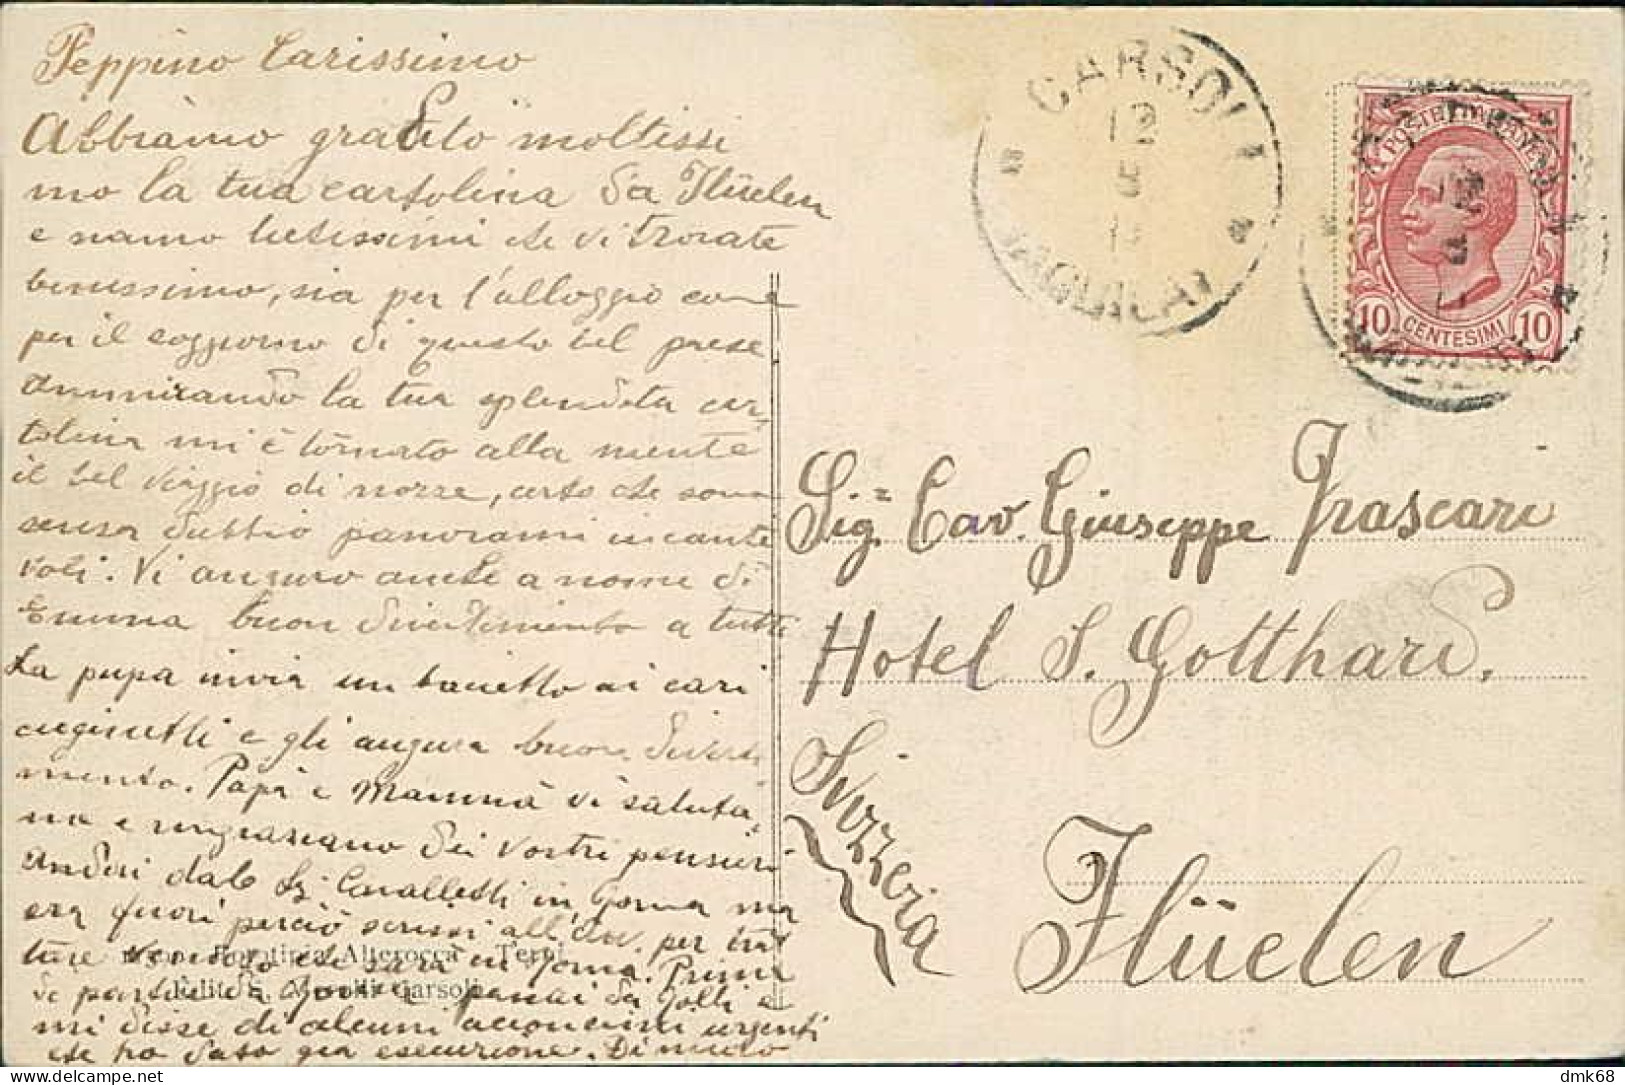 Peppino Carissimo
Abbiamo gradito moltissi
mo la tua cartolina da Flüelen
e siamo lietissimi che vi trovate
benissimo, sia per l'alloggio come
per il soggiorno di questo bel paese
ammirando la tua splendida car
tolina mi è tornato alla mente
il bel viaggio di nozze, certo che sono
senza dubbio panorami incante
voli. Vi auguro anche a nome di
Emma buon divertimento a tutti
La pupa invia un bacietto ai cari
cuginetti e gli augura buon diverti
mento. Papà e Mammà vi saluta
no e ringraziano dei vostri pensieri
Andai dal Sig. Cavalletti in Roma ma
era fuori perciò scrissi all'Avv. per
che sarà in Roma. Prima
di passai da
mi disse di alcuni urgenti
che ho dato già esecuzione. Di nuovo
Fototipia Alterocca Terni
Edit. S. Carsoli
CARSOLI
12
5
(AQUILA)
POSTE ITALIANE
10 CENTESIMI 10
Sig. Cav. Giuseppe Frascari
Hotel S. Gotthard.
Svizzera
Flüelen
dmk68